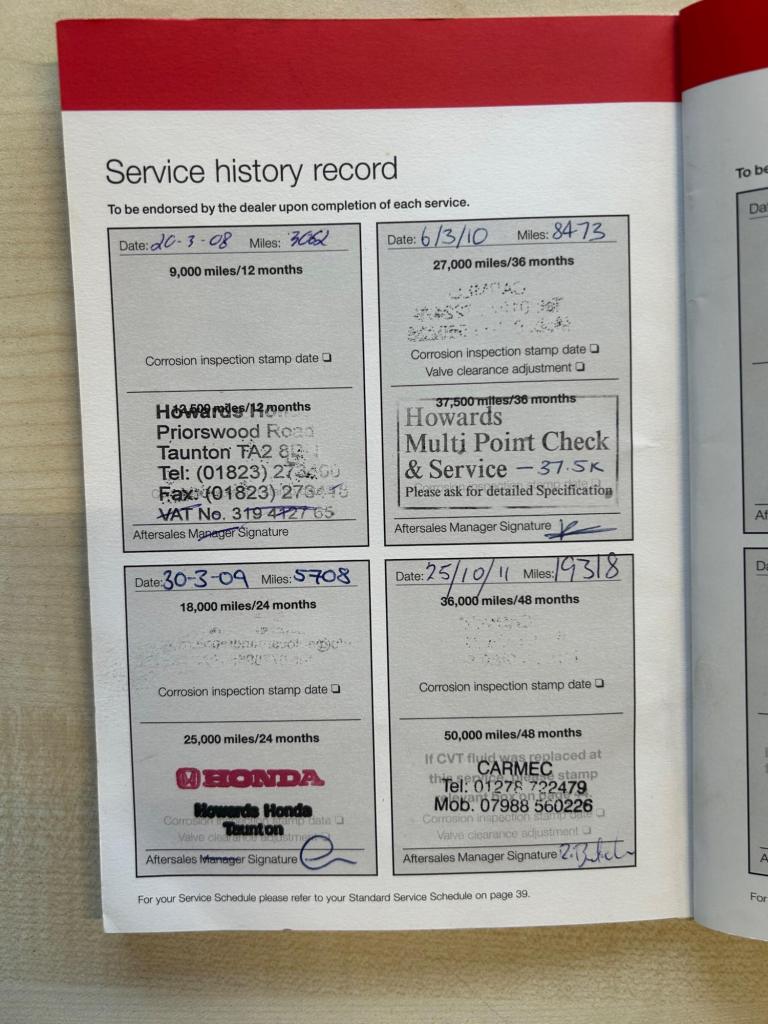 Service history record
To be endorsed by the dealer upon completion of each service.
Date: 20-3-08 Miles: 3062
9,000 miles/12 months
Corrosion inspection stamp date
12,500 miles/12 months
Howards
Priorswood Road
Taunton TA2 8
Tel: (01823)
Fax: (01823)
VAT No. 319 4127 65
Aftersales Manager Signature
Date: 6/3/10 Miles: 8473
27,000 miles/36 months
Corrosion inspection stamp date
Valve clearance adjustment
37,500 miles/36 months
Howards
Multi Point Check
& Service - 37.5K
Please ask for detailed Specification
Aftersales Manager Signature
Date: 30-3-09 Miles: 5708
18,000 miles/24 months
Corrosion inspection stamp date
25,000 miles/24 months
HONDA
Howards Honda
Taunton
Corrosion inspection stamp date
Valve clearance adjustment
Aftersales Manager Signature
Date: 25/10/11 Miles: 19318
36,000 miles/48 months
Corrosion inspection stamp date
50,000 miles/48 months
If CVT fluid was replaced at
this service, please stamp
CARMEC
Tel: 01278 722479
Mob. 07988 560226
Corrosion inspection stamp date
Valve clearance adjustment
Aftersales Manager Signature
For your Service Schedule please refer to your Standard Service Schedule on page 39.
To be